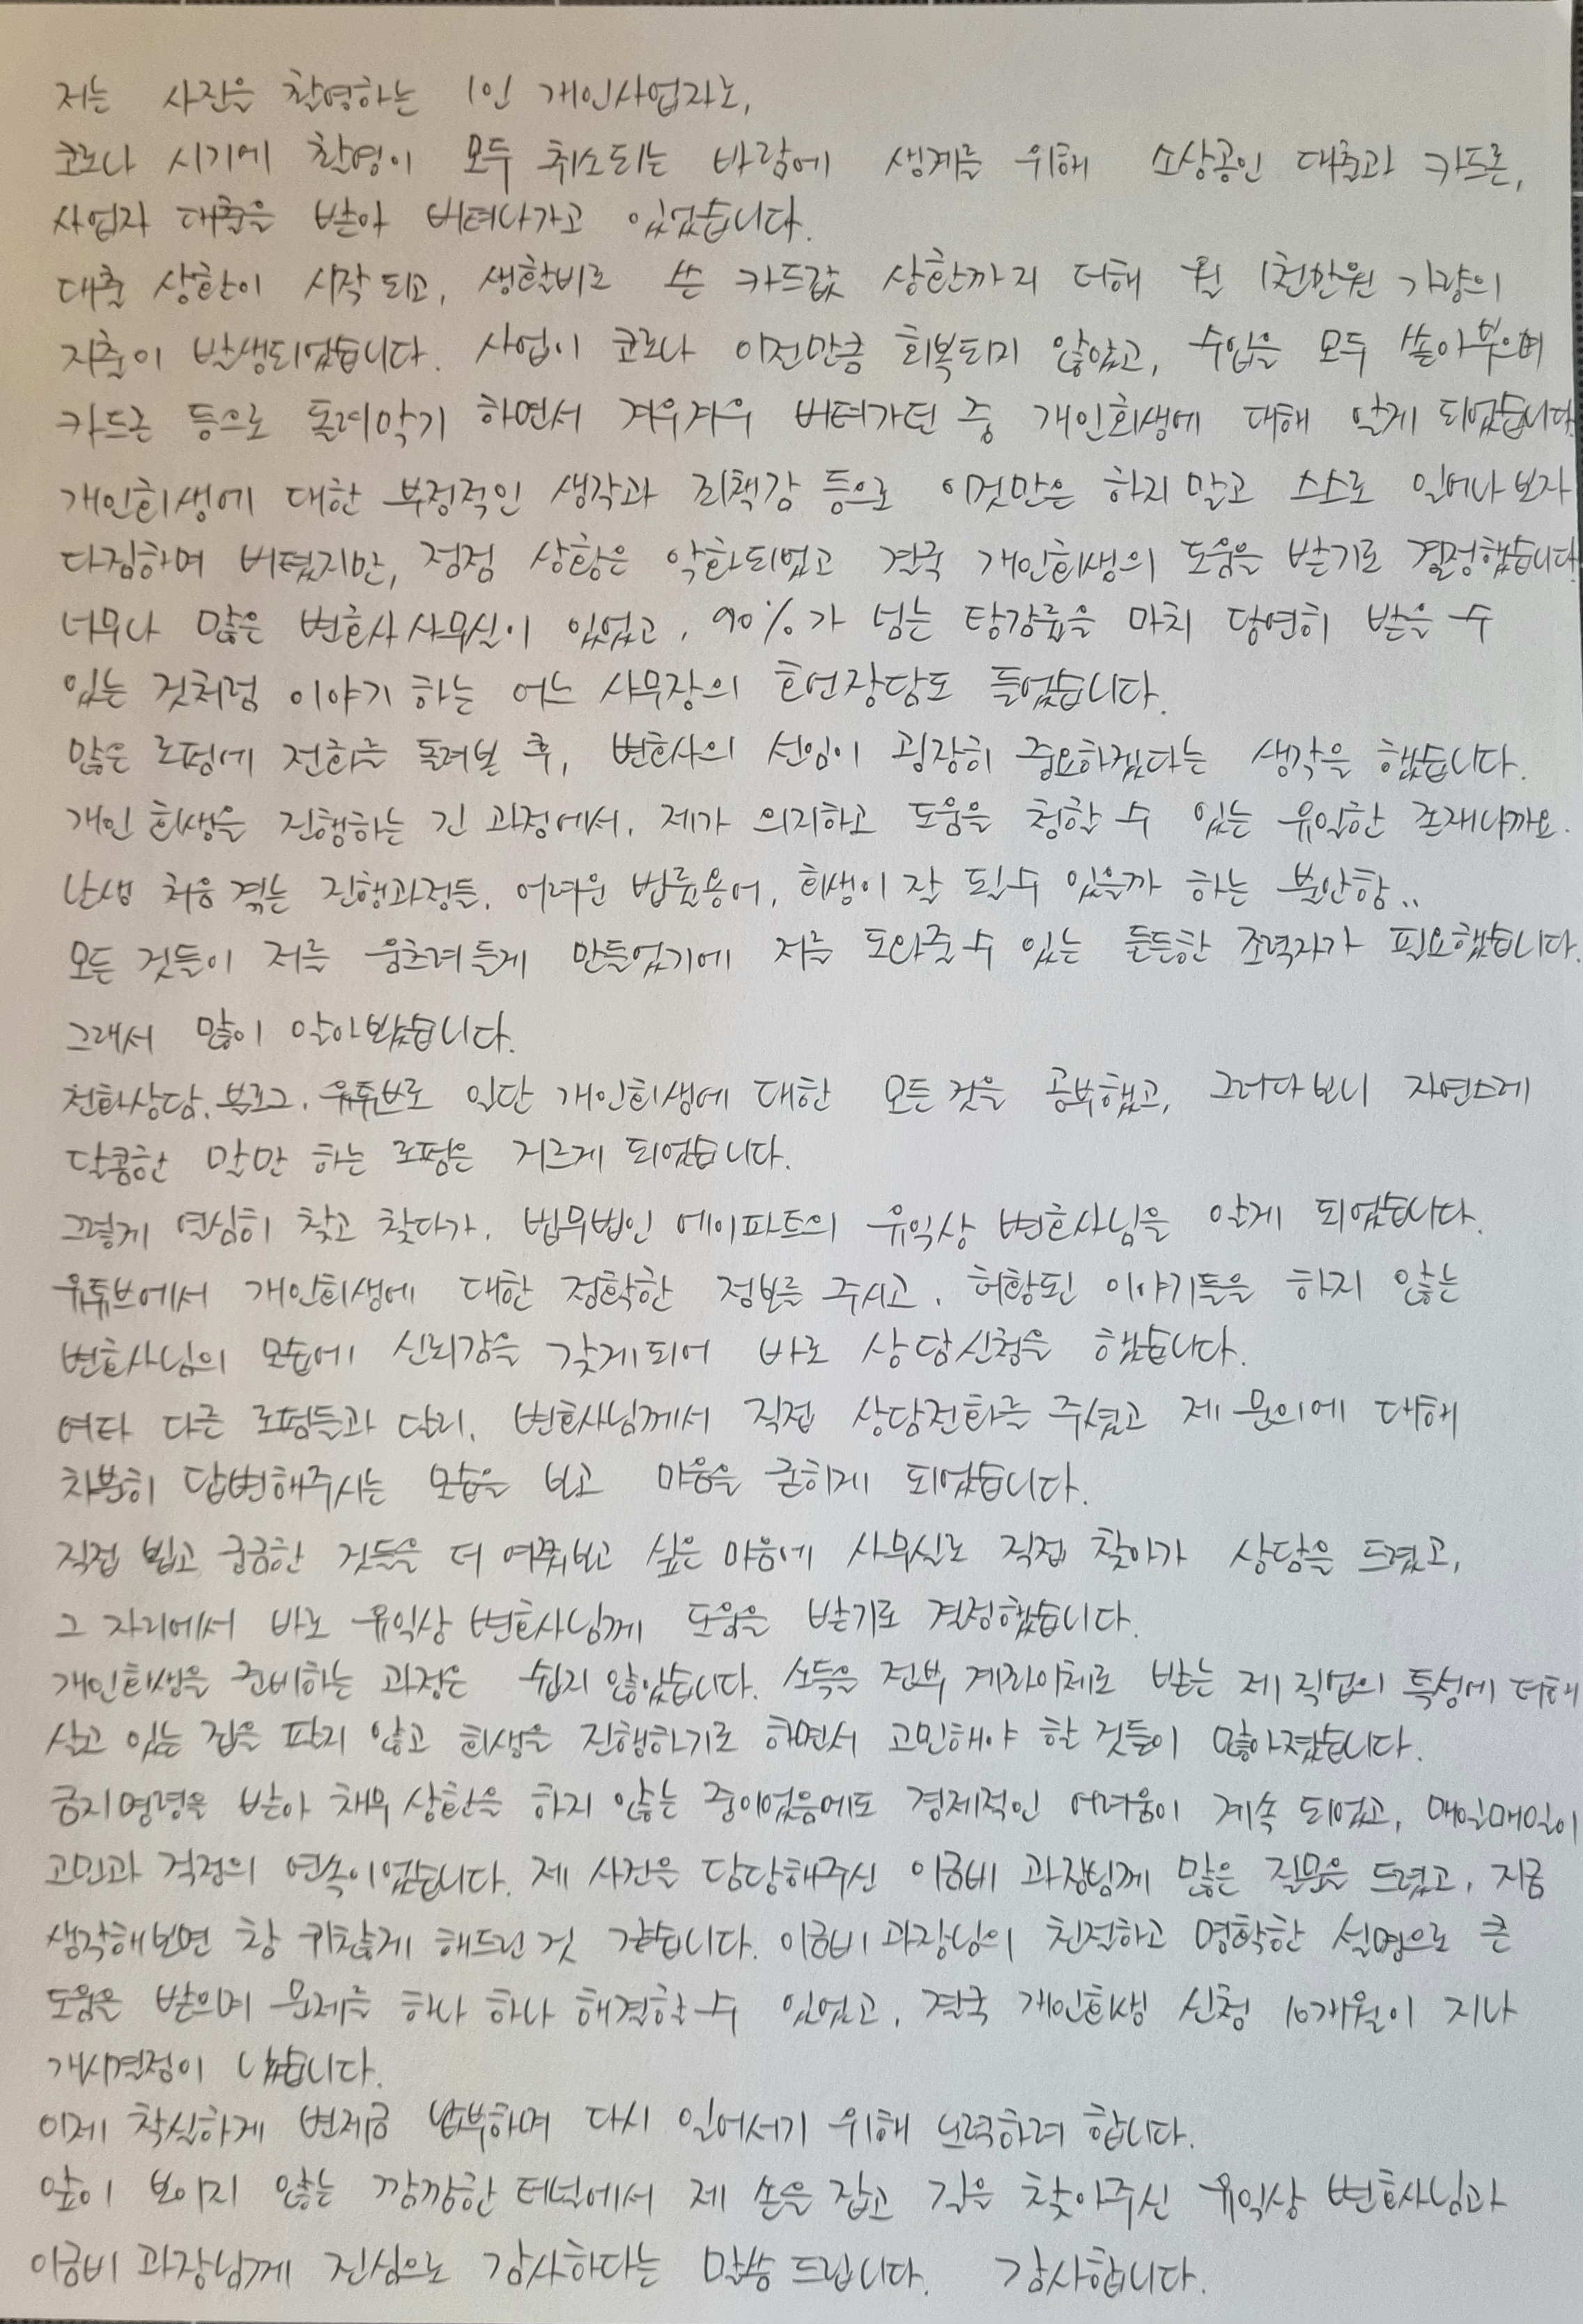 저는 사진을 촬영하는 1인 개인사업자로,
코로나 시기에 촬영이 모두 취소되는 바람에 생계를 위해 소상공인 대출과 카드론,
사업자 대출을 받아 버텨나가고 있었습니다.
대출 상환이 시작 되고, 생활비로 쓴 카드값 상환까지 더해 월 1천만원 가량의
지출이 발생되었습니다. 사업이 코로나 이전만큼 회복되지 않았고, 수입을 모두 쏟아부으며
카드론 등으로 돌려막기 하면서 겨우겨우 버텨가던 중 개인회생에 대해 알게 되었습니다.
개인회생에 대한 부정적인 생각과 죄책감 등으로 이것만은 하지 말고 스스로 일어나 보자
다짐하며 버텼지만, 점점 상황은 악화되었고 결국 개인회생의 도움을 받기로 결정했습니다.
너무나 많은 변호사 사무실이 있었고, 90%가 넘는 탕감률을 마치 당연히 받을 수
있는 것처럼 이야기 하는 어느 사무장의 호언장담도 들었습니다.
많은 로펌에 전화를 돌려본 후, 변호사의 선임이 굉장히 중요하겠다는 생각을 했습니다.
개인 회생을 진행하는 긴 과정에서, 제가 의지하고 도움을 청할 수 있는 유일한 존재니까요.
난생 처음 겪는 진행과정들, 어려운 법률용어, 회생이 잘 될 수 있을까 하는 불안함..
모든 것들이 저를 움츠려 들게 만들었기에 저를 도와줄 수 있는 든든한 조력자가 필요했습니다.
그래서 많이 알아봤습니다.
전화상담, 블로그, 유튜브로 일단 개인회생에 대한 모든 것을 공부했고, 그러다 보니 자연스레
달콤한 말만 하는 로펌은 거르게 되었습니다.
그렇게 열심히 찾고 찾다가, 법무법인 에이파트의 유익상 변호사님을 알게 되었습니다.
유튜브에서 개인회생에 대한 정확한 정보를 주시고, 허황된 이야기들을 하지 않는
변호사님의 모습에 신뢰감을 갖게되어 바로 상담신청을 했습니다.
여타 다른 로펌들과 달리, 변호사님께서 직접 상담전화를 주셨고 제 문의에 대해
차분히 답변해주시는 모습을 보고 마음을 굳히게 되었습니다.
직접 뵙고 궁금한 것들을 더 여쭤보고 싶은 마음에 사무실로 직접 찾아가 상담을 드렸고,
그 자리에서 바로 유익상 변호사님께 도움을 받기로 결정했습니다.
개인회생을 준비하는 과정은 쉽지 않았습니다. 소득을 전부 계좌이체로 받는 제 직업의 특성에 더해
살고 있는 집을 팔지 않고 회생을 진행하기로 하면서 고민해야 할 것들이 많아졌습니다.
금지명령을 받아 채무 상환을 하지 않는 중이었음에도 경제적인 어려움이 계속 되었고, 매일매일이
고민과 걱정의 연속이었습니다. 제 사건을 담당해주신 이금비 과장님께 많은 질문을 드렸고, 지금
생각해보면 참 귀찮게 해드린 것 같습니다. 이금비 과장님의 친절하고 명확한 설명으로 큰
도움을 받으며 문제를 하나 하나 해결할 수 있었고, 결국 개인회생 신청 10개월이 지나
개시결정이 났습니다.
이제 착실하게 변제금 납부하며 다시 일어서기 위해 노력하려 합니다.
앞이 보이지 않는 깜깜한 터널에서 제 손을 잡고 길을 찾아주신 유익상 변호사님과
이금비 과장님께 진심으로 감사하다는 말씀 드립니다. 감사합니다.